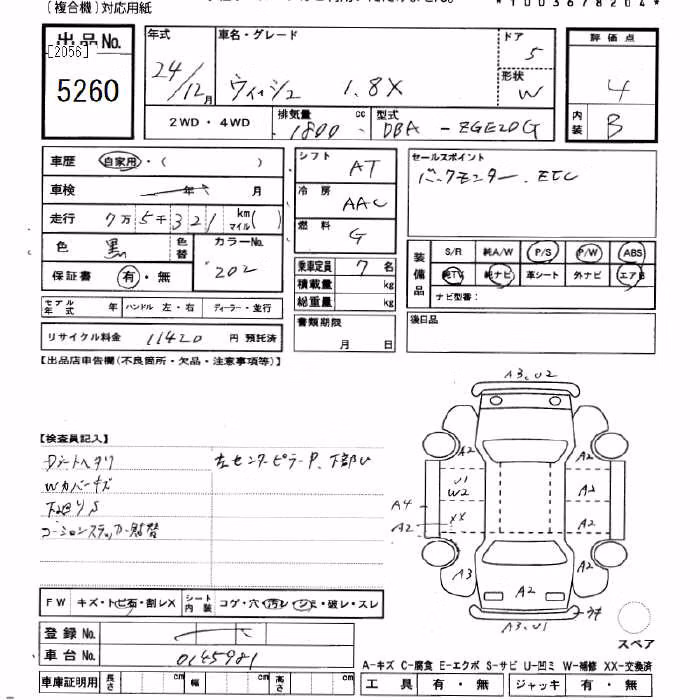 (複合機)対応用紙
*1003678204*
出品No.
[2056]
5260
年式
24/12月
車名・グレード
ウィッシュ 1.8X
ドア
5
形状
W
評価点
4
内装
B
2WD・4WD
排気量
1800 cc
型式
DBA-ZGE20G
車歴 自家用・( )
車検 年 月
走行 7万5千321 km マイル( )
色 黒 色替
カラーNo.
202
保証書 有・無
シフト AT
冷房 AAC
燃料 G
乗車定員 7名
積載量 kg
総重量 kg
書類期限
月 日
セールスポイント
バックモニター、ETC
装備品
S/R 純A/W P/S P/W ABS
純TV 純ナビ 革シート 外ナビ エアB
ナビ型番:
後日品
モデル年式 年 ハンドル 左・右 ディーラー・並行
リサイクル料金 11420 円 預託済
【出品店申告欄(不良箇所・欠品・注意事項等)】
【検査員記入】
Dシートヘタリ
左センターピラーP、下部U
Wカバーキズ
下回りS
コーションステッカー貼替
A3、U2
A2
A2
U1
W2
A2
A4
A2
XX
A2
A3
A2
A2
A3、U1
スペア
FW キズ・トビ石・割レX
シート内装 コゲ・穴・汚レ・シミ・破レ・スレ
登録No.
車台No. 0145981
車庫証明用 長さ cm 幅 cm 高さ cm
A-キズ C-腐食 E-エクボ S-サビ U-凹ミ W-補修 XX-交換済
工具 有・無 ジャッキ 有・無